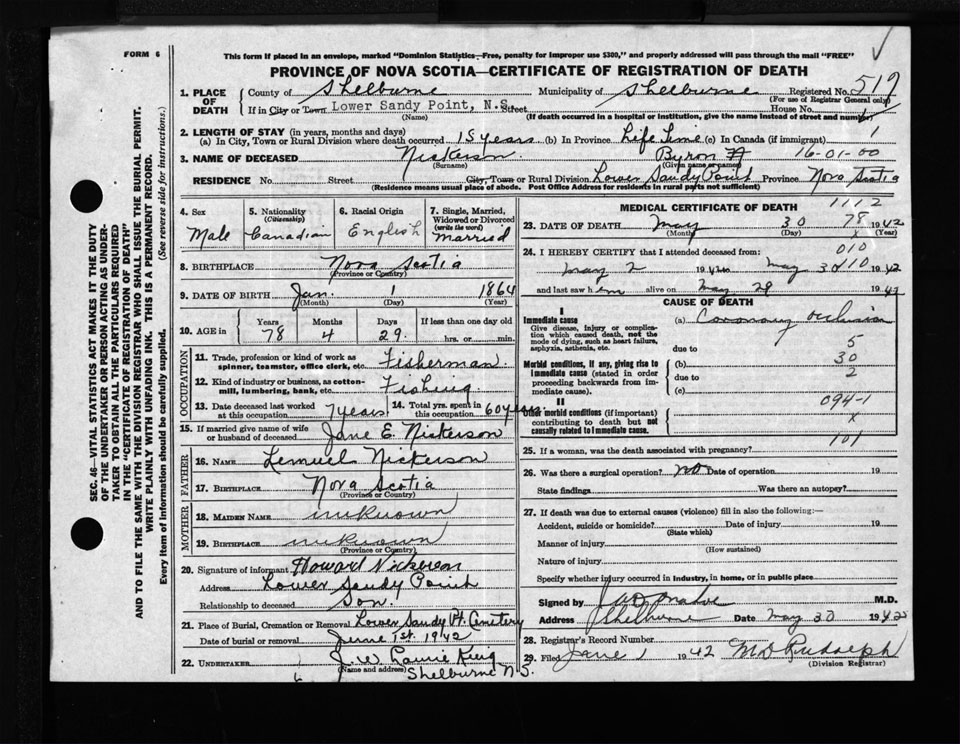 FORM 6
This form if placed in an envelope, marked "Dominion Statistics—Free, penalty for improper use $300," and properly addressed will pass through the mail "FREE"
PROVINCE OF NOVA SCOTIA—CERTIFICATE OF REGISTRATION OF DEATH
SEC. 46—VITAL STATISTICS ACT MAKES IT THE DUTY
OF THE UNDERTAKER OR PERSON ACTING AS UNDER-
TAKER TO OBTAIN ALL THE PARTICULARS REQUIRED
IN THE "CERTIFICATE OF REGISTRATION OF DEATH"
AND TO FILE THE SAME WITH THE DIVISION REGISTRAR WHO SHALL ISSUE THE BURIAL PERMIT.
WRITE PLAINLY WITH UNFADING INK. THIS IS A PERMANENT RECORD.
Every item of information should be carefully supplied. (See reverse side for instructions.)
1. PLACE OF DEATH County of Shelburne Municipality of Shelburne Registered No. 519
(For use of Registrar General only)
If in City or Town Lower Sandy Point, N.S. Street House No.
(Name) (If death occurred in a hospital or institution, give the name instead of street and number)
2. LENGTH OF STAY (in years, months and days)
(a) In City, Town or Rural Division where death occurred 15 years (b) In Province Life Time (c) In Canada (if immigrant) 1
3. NAME OF DECEASED Nickerson Byron 16-01-00
(Surname) (Given name or names)
RESIDENCE No. Street City, Town or Rural Division Lower Sandy Point Province Nova Scotia
(Residence means usual place of abode. Post Office Address for residents in rural parts not sufficient)
4. Sex Male
5. Nationality (Citizenship) Canadian
6. Racial Origin English
7. Single, Married, Widowed or Divorced (write the word) Married
8. BIRTHPLACE Nova Scotia
(Province or Country)
9. DATE OF BIRTH Jan. 1 1864
(Month) (Day) (Year)
10. AGE in Years 78 Months 4 Days 29 If less than one day old hrs. or min.
OCCUPATION
11. Trade, profession or kind of work as spinner, teamster, office clerk, etc. Fisherman
12. Kind of industry or business, as cotton-mill, lumbering, bank, etc. Fishing
13. Date deceased last worked at this occupation 7 years 14. Total yrs. spent in this occupation 60 years
15. If married give name of wife or husband of deceased Jane E. Nickerson
FATHER
16. NAME Lemuel Nickerson
17. BIRTHPLACE Nova Scotia
(Province or Country)
MOTHER
18. MAIDEN NAME unknown
19. BIRTHPLACE unknown
(Province or Country)
20. Signature of informant Howard Nickerson
Address Lower Sandy Point
Relationship to deceased Son.
21. Place of Burial, Cremation or Removal Lower Sandy Pt. Cemetery
Date of burial or removal June 1st 1942
22. UNDERTAKER J. W.
(Name and address) Shelburne N.S.
MEDICAL CERTIFICATE OF DEATH 1112
23. DATE OF DEATH May 30 78 1942
(Month) (Day) x (Year)
24. I HEREBY CERTIFY that I attended deceased from: 010
May 2 1942 to May 30 10 1942
and last saw him alive on May 29 1942
CAUSE OF DEATH
I
Immediate cause
Give disease, injury or complication which caused death, not the mode of dying, such as heart failure, asphyxia, asthenia, etc.
(a) Coronary occlusion
due to 5
Morbid conditions, if any, giving rise to immediate cause (stated in order proceeding backwards from immediate cause).
30
(b) 2
due to
(c)
II 094-1
Other morbid conditions (if important) contributing to death but not causally related to immediate cause. x
101
25. If a woman, was the death associated with pregnancy?
26. Was there a surgical operation? no Date of operation 19
State findings Was there an autopsy?
27. If death was due to external causes (violence) fill in also the following:—
Accident, suicide or homicide? Date of injury 19
(State which)
Manner of injury
(How sustained)
Nature of injury
Specify whether injury occurred in industry, in home, or in public place
Signed by M.D.
Address Shelburne Date May 30 1942
28. Registrar's Record Number
29. Filed June 1 1942 M D Rudolph
(Division Registrar)